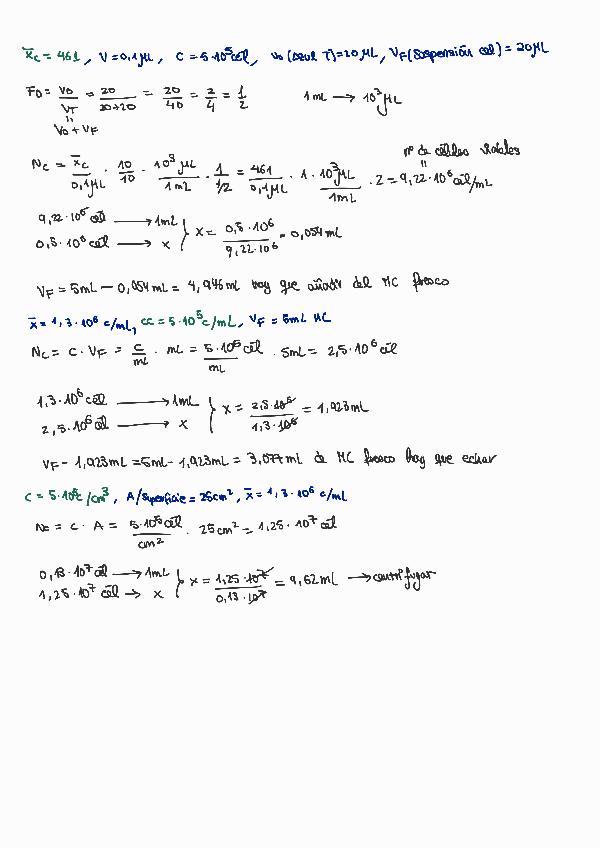 x̄c = 461, V = 0,1 μL, C = 5·10⁵ cél, Vo (Azul T) = 20 μL, VF (Suspensión cel) = 20 μL
FD = Vo/VT = 20/(20+20) = 20/40 = 2/4 = 1/2    1 mL → 10³ μL
"
Vo + VF
nº de células viables
"
Nc = x̄c/0,1 μL · 10/10 · 10³ μL/1 mL · 1/(1/2) = 461/0,1 μL · 1 · 10³ μL/1 mL · 2 = 9,22·10⁶ cél/mL
9,22·10⁶ cél → 1 mL
0,5·10⁶ cél → x } x = 0,5·10⁶/9,22·10⁶ = 0,054 mL
VF = 5 mL − 0,054 mL = 4,946 mL hay que añadir del MC fresco
x̄ = 1,3·10⁶ c/mL, CC = 5·10⁵ c/mL, VF = 5 mL MC
Nc = C · VF = C/mL · mL = 5·10⁵ cél/mL · 5 mL = 2,5·10⁶ cél
1,3·10⁶ cél → 1 mL
2,5·10⁶ cél → x } x = 2,5·10⁶/1,3·10⁶ = 1,923 mL
VF − 1,923 mL = 5 mL − 1,923 mL = 3,077 mL de MC fresco hay que echar
C = 5·10⁵ c/cm³, A/superficie = 25 cm², x̄ = 1,3·10⁶ c/mL
Nc = C · A = 5·10⁵ cél/cm² · 25 cm² = 1,25·10⁷ cél
0,13·10⁷ cél → 1 mL
1,25·10⁷ cél → x } x = 1,25·10⁷/0,13·10⁷ = 9,62 mL → centrifugar